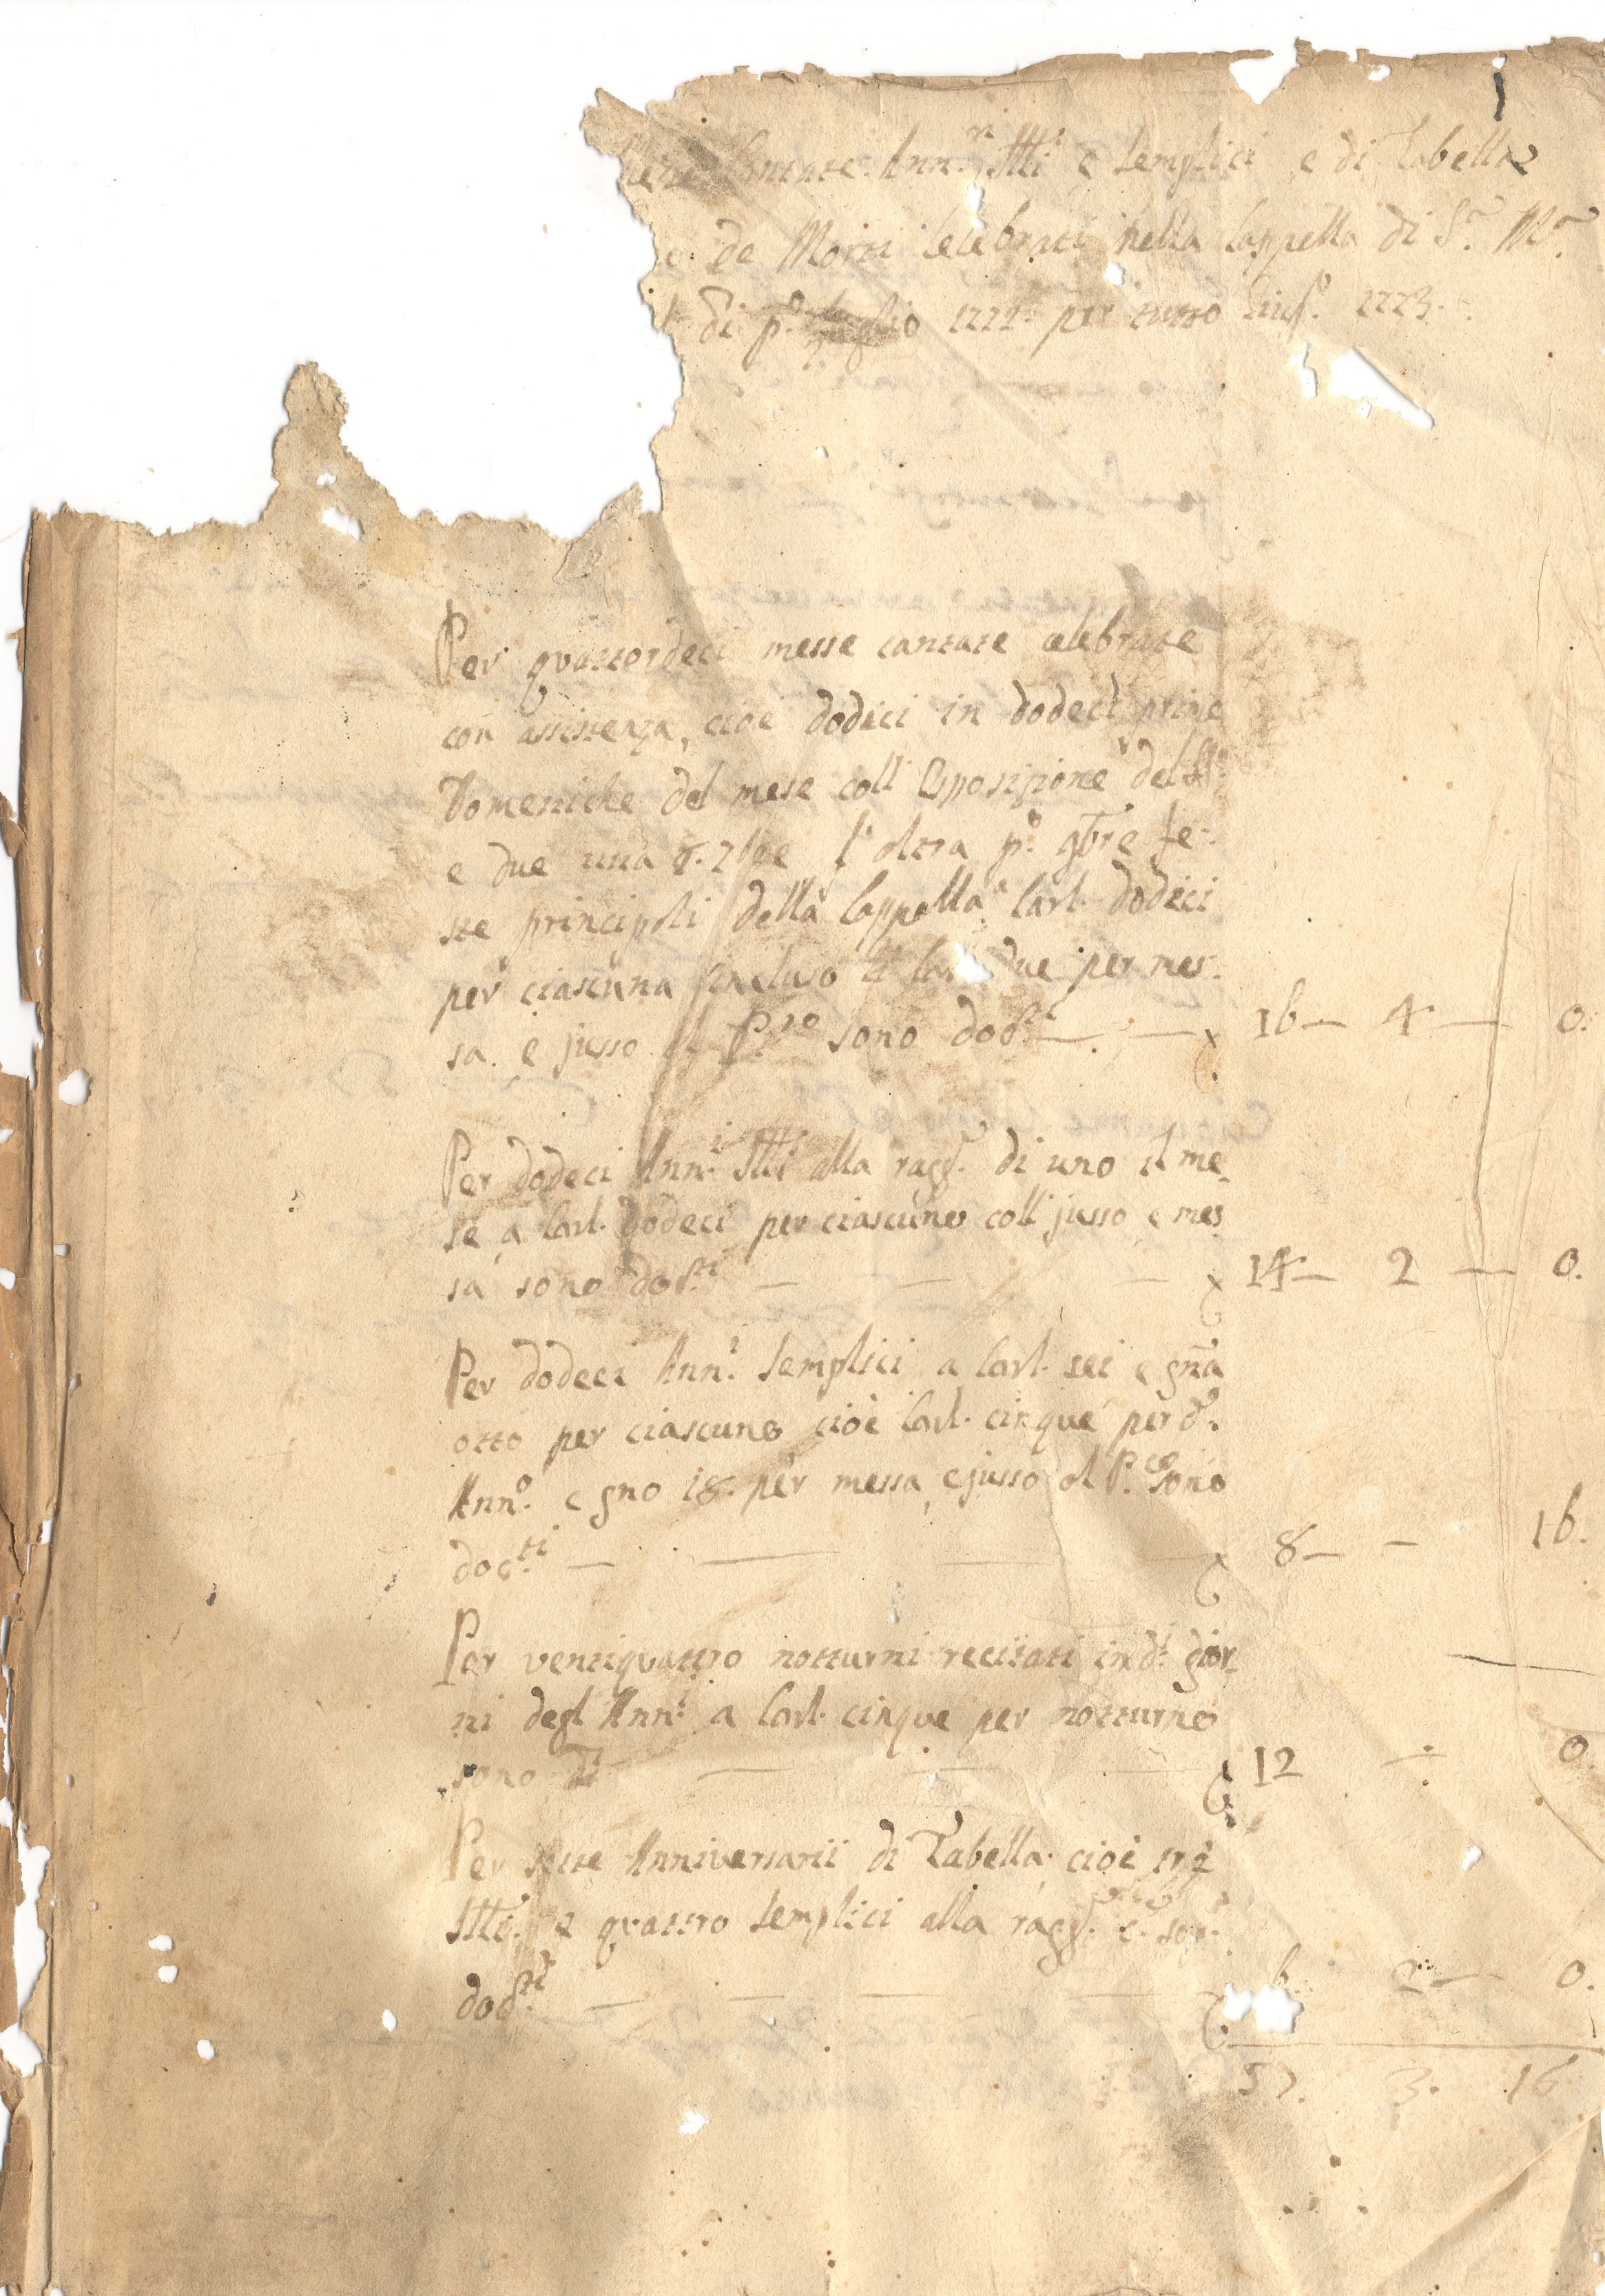 Cantate Ann.ri Stti e semplici e di Tabella
de Morti Celebrati nella Cappella di S.a M.a
di p.o Luglio 1722 per tutto Giug.o 1723.
Per quattordeci messe cantate celebrate
con assistenza, cioè dodici in dodeci prime
Domeniche del mese coll'Esposizione del
e due una 8. 7bre l'altra p.o 9bre fe-
ste principali della Cappella Carl. dodici
per ciascuna incluso li due per mes-
sa. e jusso al P. sono doc.ti 16 — 4 — 0.
Per dodeci Ann.i Stti alla ragg. di uno il me-
se a Carl. dodeci per ciascuno coll jusso e mes
sa sono doc.ti — — — 14 — 2 — 0.
Per dodeci Ann.i semplici a Carl. sei e gna
otto per ciascuno cioè Carl. cinque per d.o
Ann.o e gno 18. per messa, e jusso al P. sono
doc.ti — — — 8 — — 16.
Per ventiquattro notturni recitati in d.i gior-
ni degl Ann.i a Carl. cinque per notturno
sono d.ti — — — 12 — 0
Per sette Anniversarii di Tabella cioè tre
Stti. e quattro semplici alla ragg.
doc.ti — — — — 6 2 — 0.
57. 3. 16